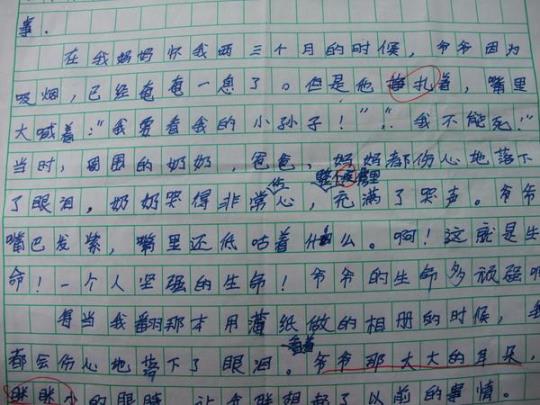 事.
在我妈妈怀我两三个月的时候,爷爷因为
吸烟,已经奄奄一息了。但是他挣扎着,嘴里
大喊着:“我要看我的小孙子!”,“我不能死!”
当时,周围的奶奶,爸爸,妈妈都伤心地落下
整个房里
了眼泪,奶奶哭得非常伤心,充满了哭声。爷爷
嘴巴发紫,嘴里还低咕着什么。啊!这就是生
命!一个人坚强的生命!爷爷的生命多顽强啊
每当我翻那本用薄纸做的相册的时候,我
都会伤心地落下了眼泪。看着爷爷那大大的耳朵,
眯眯小的眼睛,让我联想起了以前的事情。